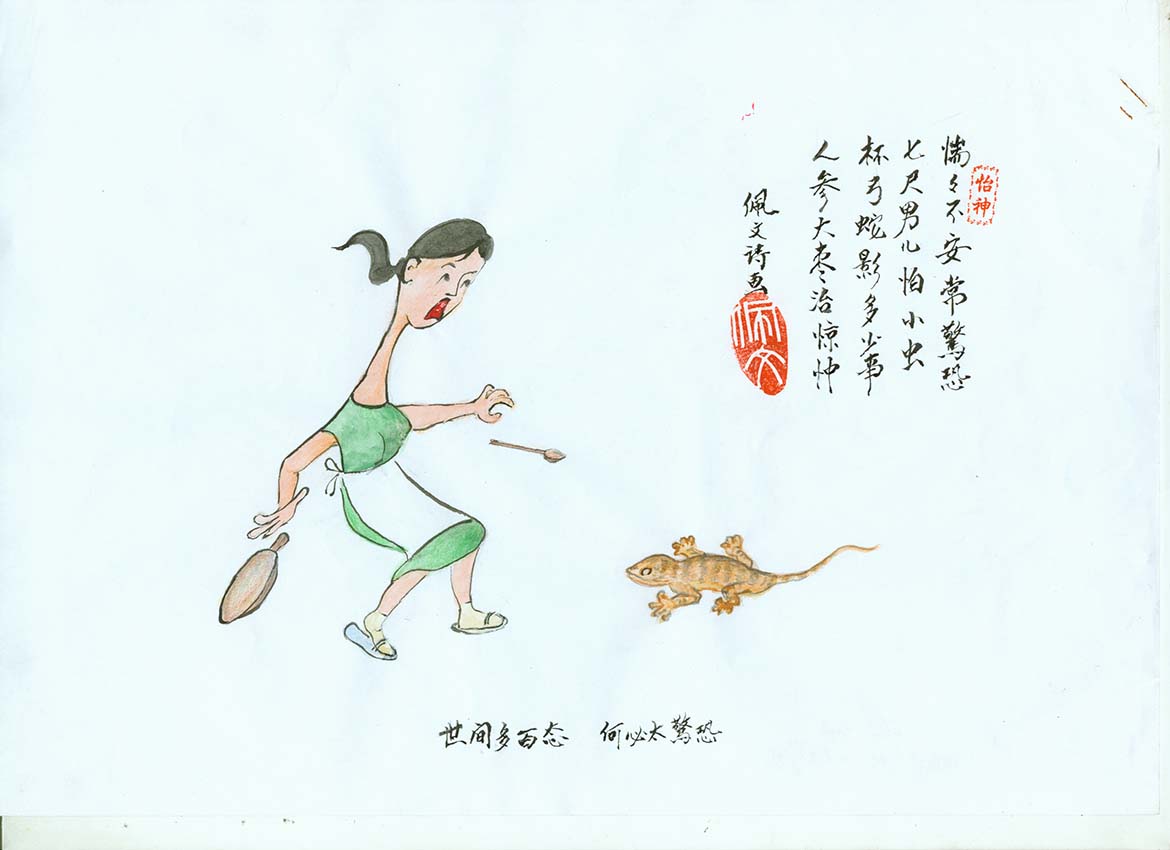 怡神
惴々不安常驚恐
七尺男儿怕小虫
杯弓蛇影多少事
人参大枣治惊忡
佩文诗画
佩文
世间多百态 何必太驚恐